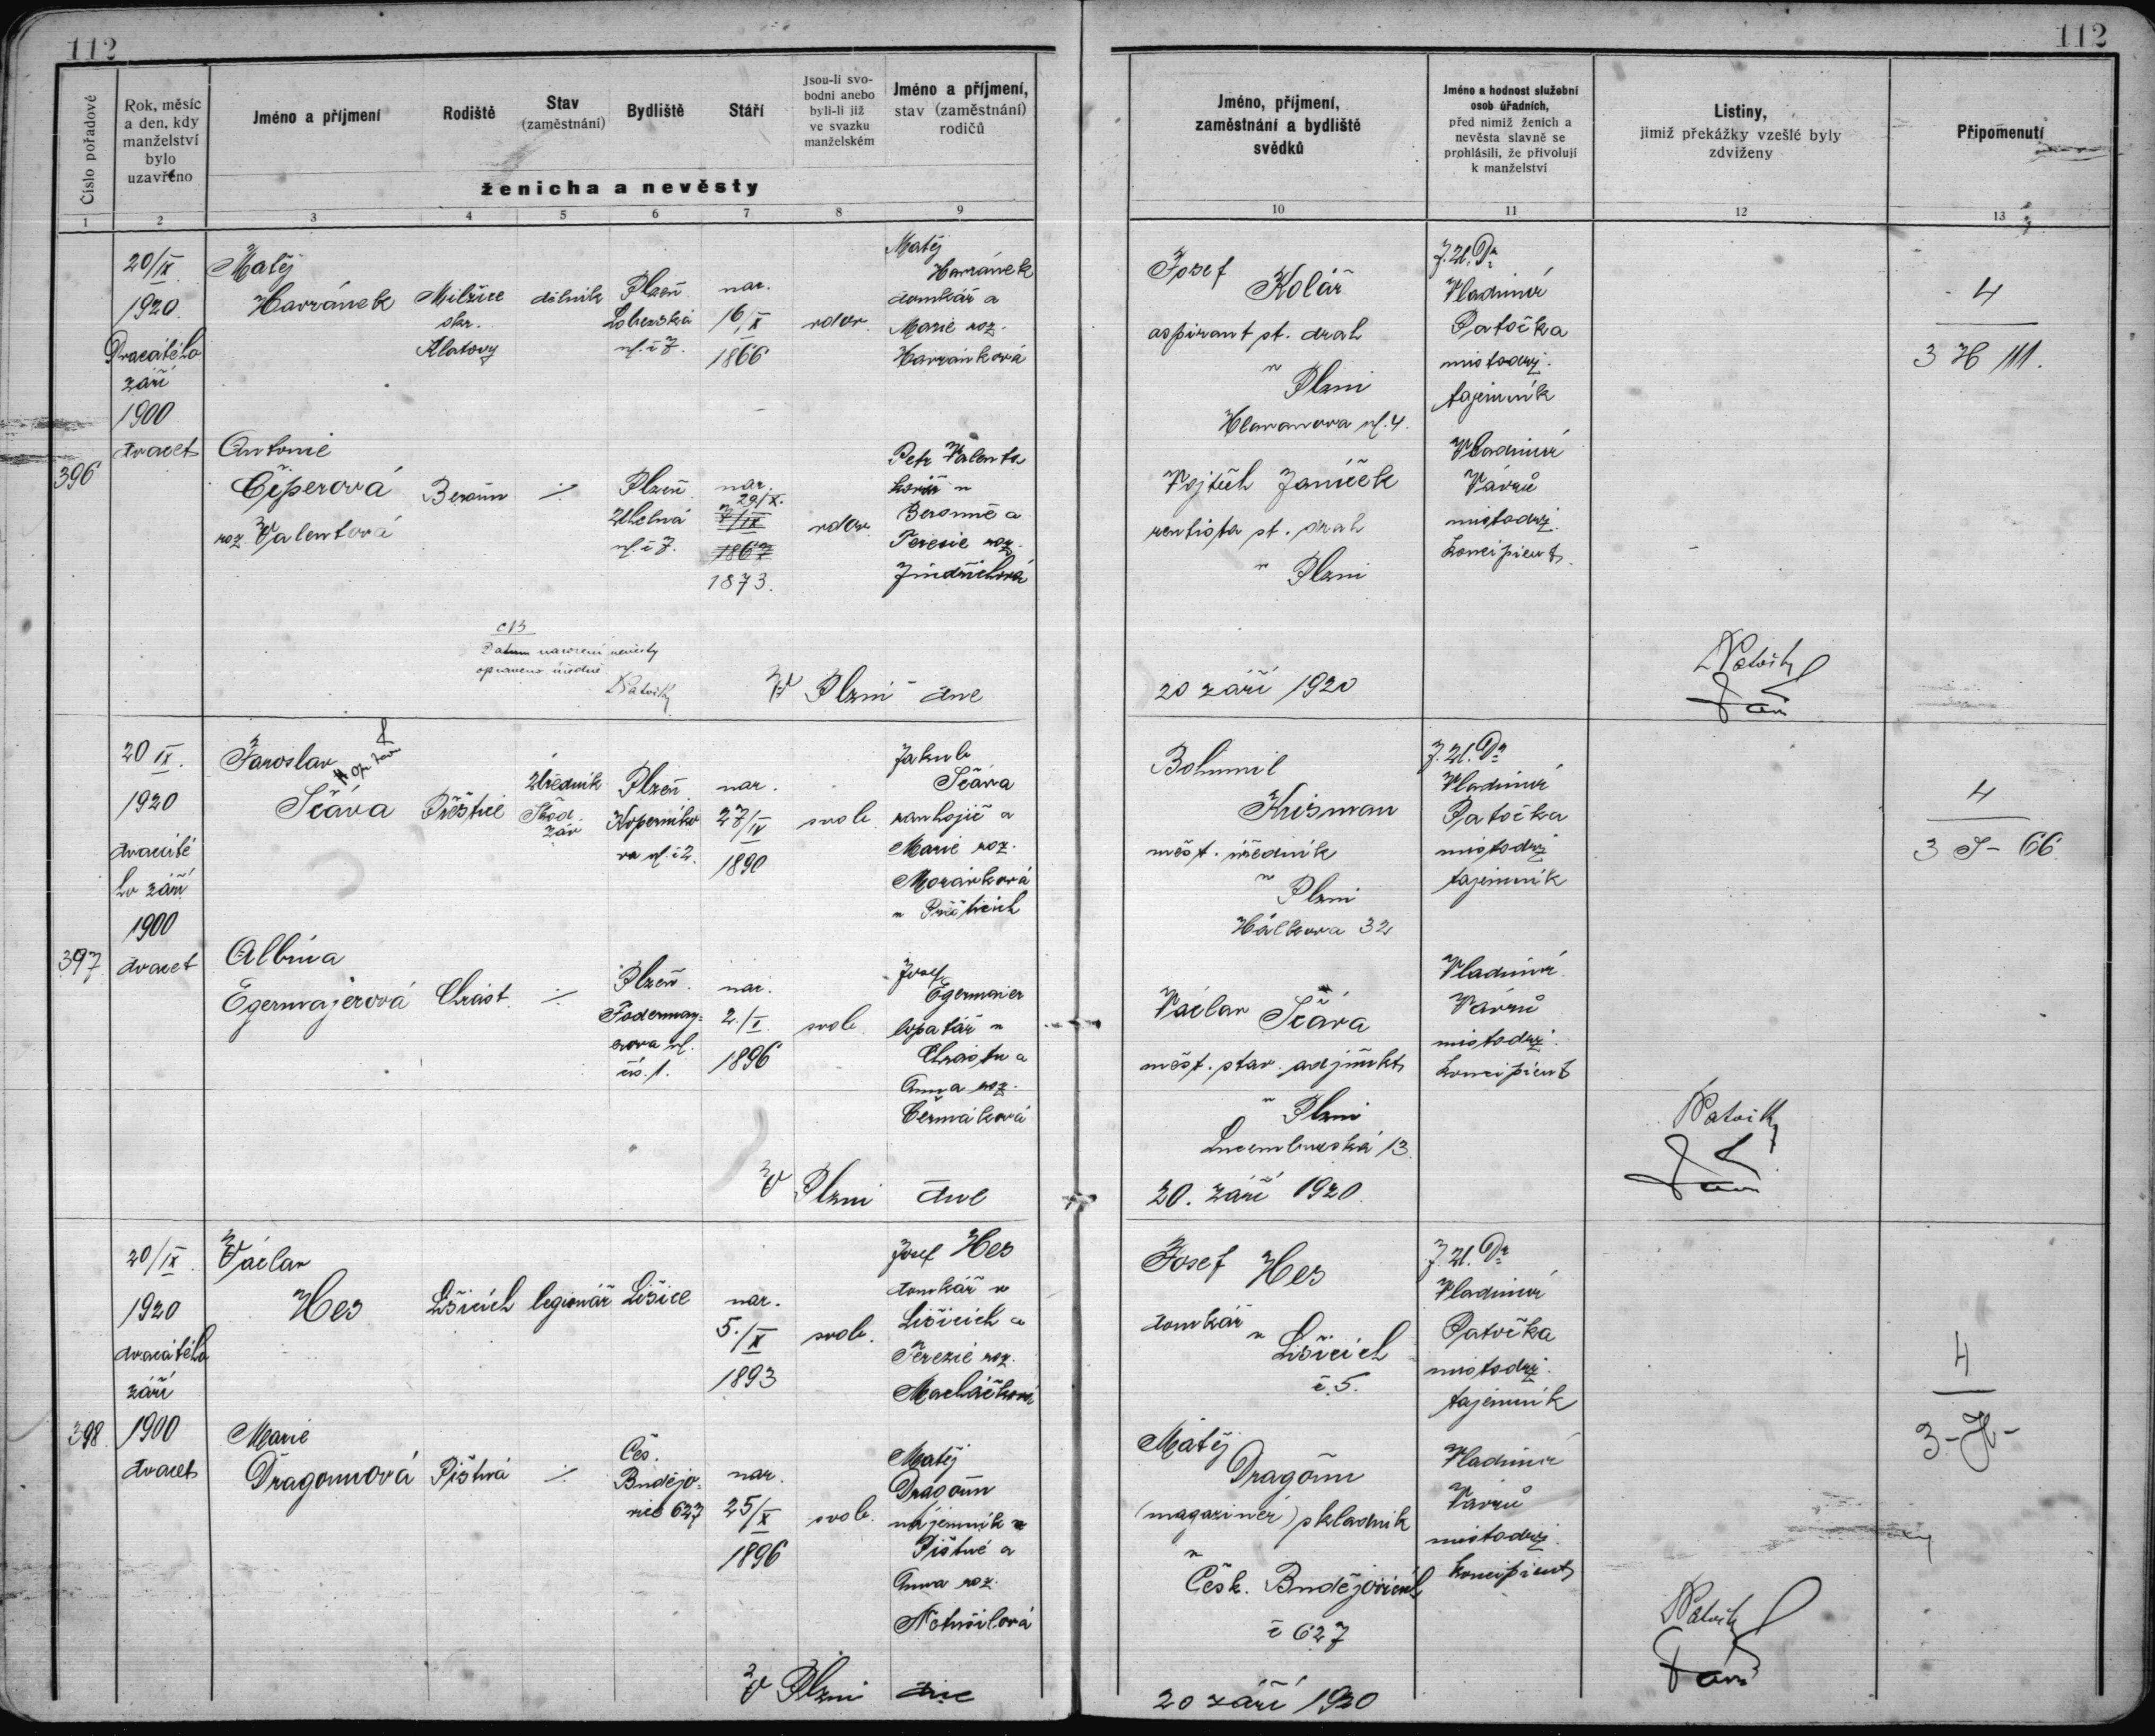 112
112
Číslo pořadové
Rok, měsíc
a den, kdy
manželství
bylo
uzavřeno
Jméno a příjmení
Rodiště
Stav
(zaměstnání)
Bydliště
Stáří
Jsou-li svo-
bodni anebo
byli-li již
ve svazku
manželském
Jméno a příjmení,
stav (zaměstnání)
rodičů
ženicha a nevěsty
Jméno, příjmení,
zaměstnání a bydliště
svědků
Jméno a hodnost služební
osob úřadních,
před nimiž ženich a
nevěsta slavně se
prohlásili, že přivolují
k manželství
Listiny,
jimiž překážky vzešlé byly
zdviženy
Připomenutí
1 2 3 4 5 6 7 8 9 10 11 12 13
396
20/IX
1920.
Dvacátého
září
1900
dvacet
Matěj
Havránek
Milžice
okr.
Klatovy
dělník
Plzeň
Lobezská
ul. č 7.
nar.
16/X
1866
vdov.
Matěj
Havránek
domkář a
Marie roz.
Havránková
Antonie
Čiperová
roz. Valentová
Beroun
Plzeň
Úhelná
ul. č 7.
nar.
29/X.
7/IX
1867
1873.
vdov.
Petr Valenta
kovář v
Berouně a
Terezie roz.
Jindřichová
Datum narození nevěsty
opraveno úředně
V Plzni dne
Josef
Kolář
aspirant st. drah
v Plzni
Hlavanova ul. 4.
Vojtěch Janíček
rentista st. drah
v Plzni
20 září 1920
J.U.Dr
Vladimír
Patočka
místodrž.
tajemník
Vladimír
Vávrů
místodrž.
koncipient
4
3 H 111.
397
20 IX.
1920
dvacáté
ho září
1900
dvacet
Jaroslav
Ščáva
Přeštice
Úředník
Škod.
záv
Plzeň
Koperníko
va ul. č 2.
nar.
27/IV
1890
svob.
Jakub
Ščáva
ranhojič a
Marie roz.
Morávková
v Přešticích
Albína
Egermajerová
Chrást
Plzeň.
Födermay-
erova ul.
čís. 1.
nar.
2./I.
1896
svob.
Josef
Egermaier
lopatář v
Chrástu a
Anna roz.
Čermáková
V Plzni dne
Bohumil
Krisman
měst. úředník
v Plzni
Hálkova 32
Václav Ščáva
měst. stav. adjunkt
v Plzni
Lucemburská 13.
20. září 1920.
J.U.Dr
Vladimír
Patočka
místodrž
tajemník
Vladimír
Vávrů
místodrž.
koncipient
4
3 S- 66.
398.
20/IX.
1920
dvacátého
září
1900
dvacet
Václav
Hes
Lišicích
legionář
Lišice
nar.
5./X
1893
svob.
Josef Hes
domkář v
Lišicích a
Terezie roz.
Macháčková
Marie
Dragounová
Pištná
Čes.
Budějo-
vice 627
nar.
25/X
1896
svob.
Matěj
Dragoun
nájemník v
Pištné a
Anna roz.
V Plzni dne
Josef Hes
domkář
v Lišicích
č. 5.
Matěj
Dragoun
(magazinér) skladník
v
Česk. Budějovicích
č 627
20 září 1920
J.U.Dr
Vladimír
Patočka
místodrž.
tajemník
Vladimír
Vávrů
místodrž.
koncipient
4
3-H-